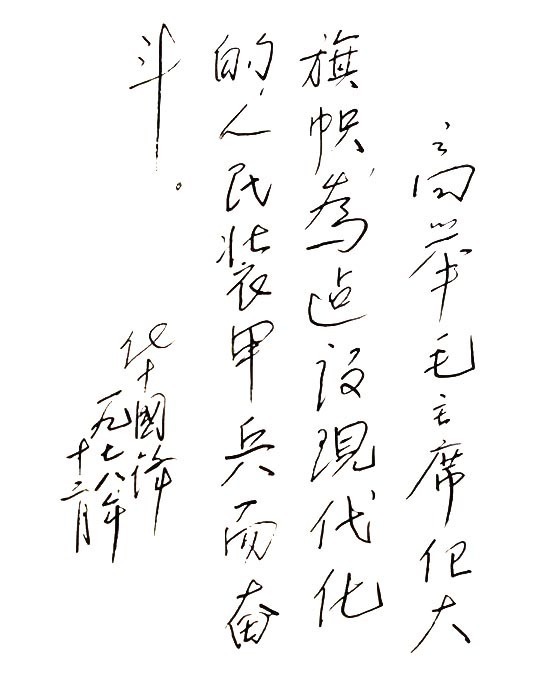 高举毛主席伟大
旗帜，为建设现代化
的人民装甲兵而奋
斗。
华国锋
一九七八年
十二月